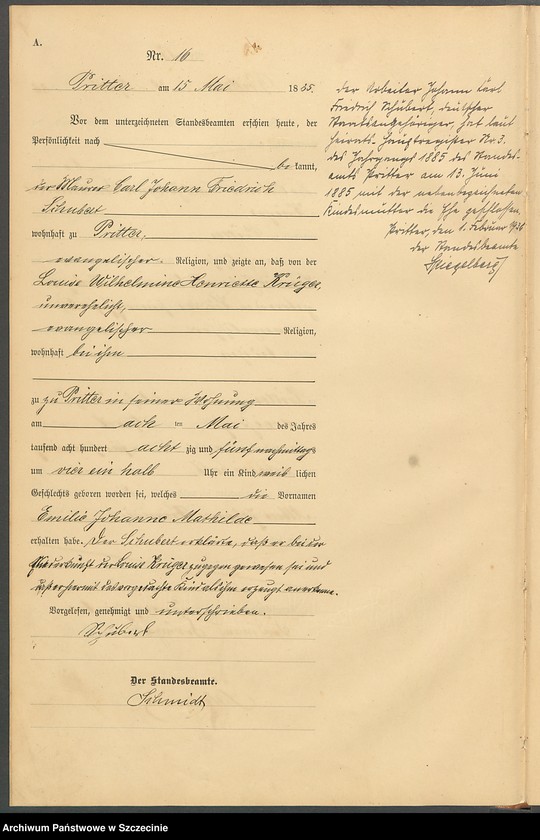 A.
Nr. 16
Pritter am 15 Mai 1885.
Vor dem unterzeichneten Standesbeamten erschien heute, der
Persönlichkeit nach
bekannt,
der Maurer Carl Johann Friedrich
Schubert
wohnhaft zu Pritter,
evangelischer Religion, und zeigte an, daß von der
Louise Wilhelmine Henriette Krüger,
unverehelicht,
evangelischer Religion,
wohnhaft bei ihm
zu Pritter in seiner Wohnung
am ach ten Mai des Jahres
tausend acht hundert acht zig und fünf nachmittags
um vier ein halb Uhr ein Kind weib lichen
Geschlechts geboren worden sei, welches die Vornamen
Emilie Johanne Mathilde
erhalten habe. Der Schubert erklärte, daß er bei der
Niederkunft der Louise Krüger zugegen gewesen sei und
das vorgedachte Kind als von ihm erzeugt anerkenne.
Vorgelesen, genehmigt und unterschrieben.
Schubert
Der Standesbeamte.
Schmidt
Der Arbeiter Johann Carl
Fredrich Schubert, deutscher
Staatsangehöriger, hat laut
Heirats-Hauptregister Nr. 3.
des Jahrgangs 1885 des Standes-
amts Pritter am 13. Juni
1885 mit der nebenbezeichneten
Kindesmutter die Ehe geschlossen.
Pritter, den 1. Februar 1936
der Standesbeamte
Spiegelberg
Archiwum Państwowe w Szczecinie